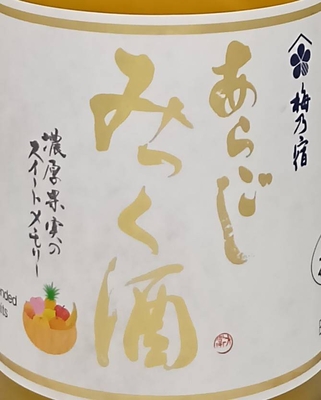 梅乃宿
あらごし
みっく酒
濃厚果実の
スイートメモリー
nded
its